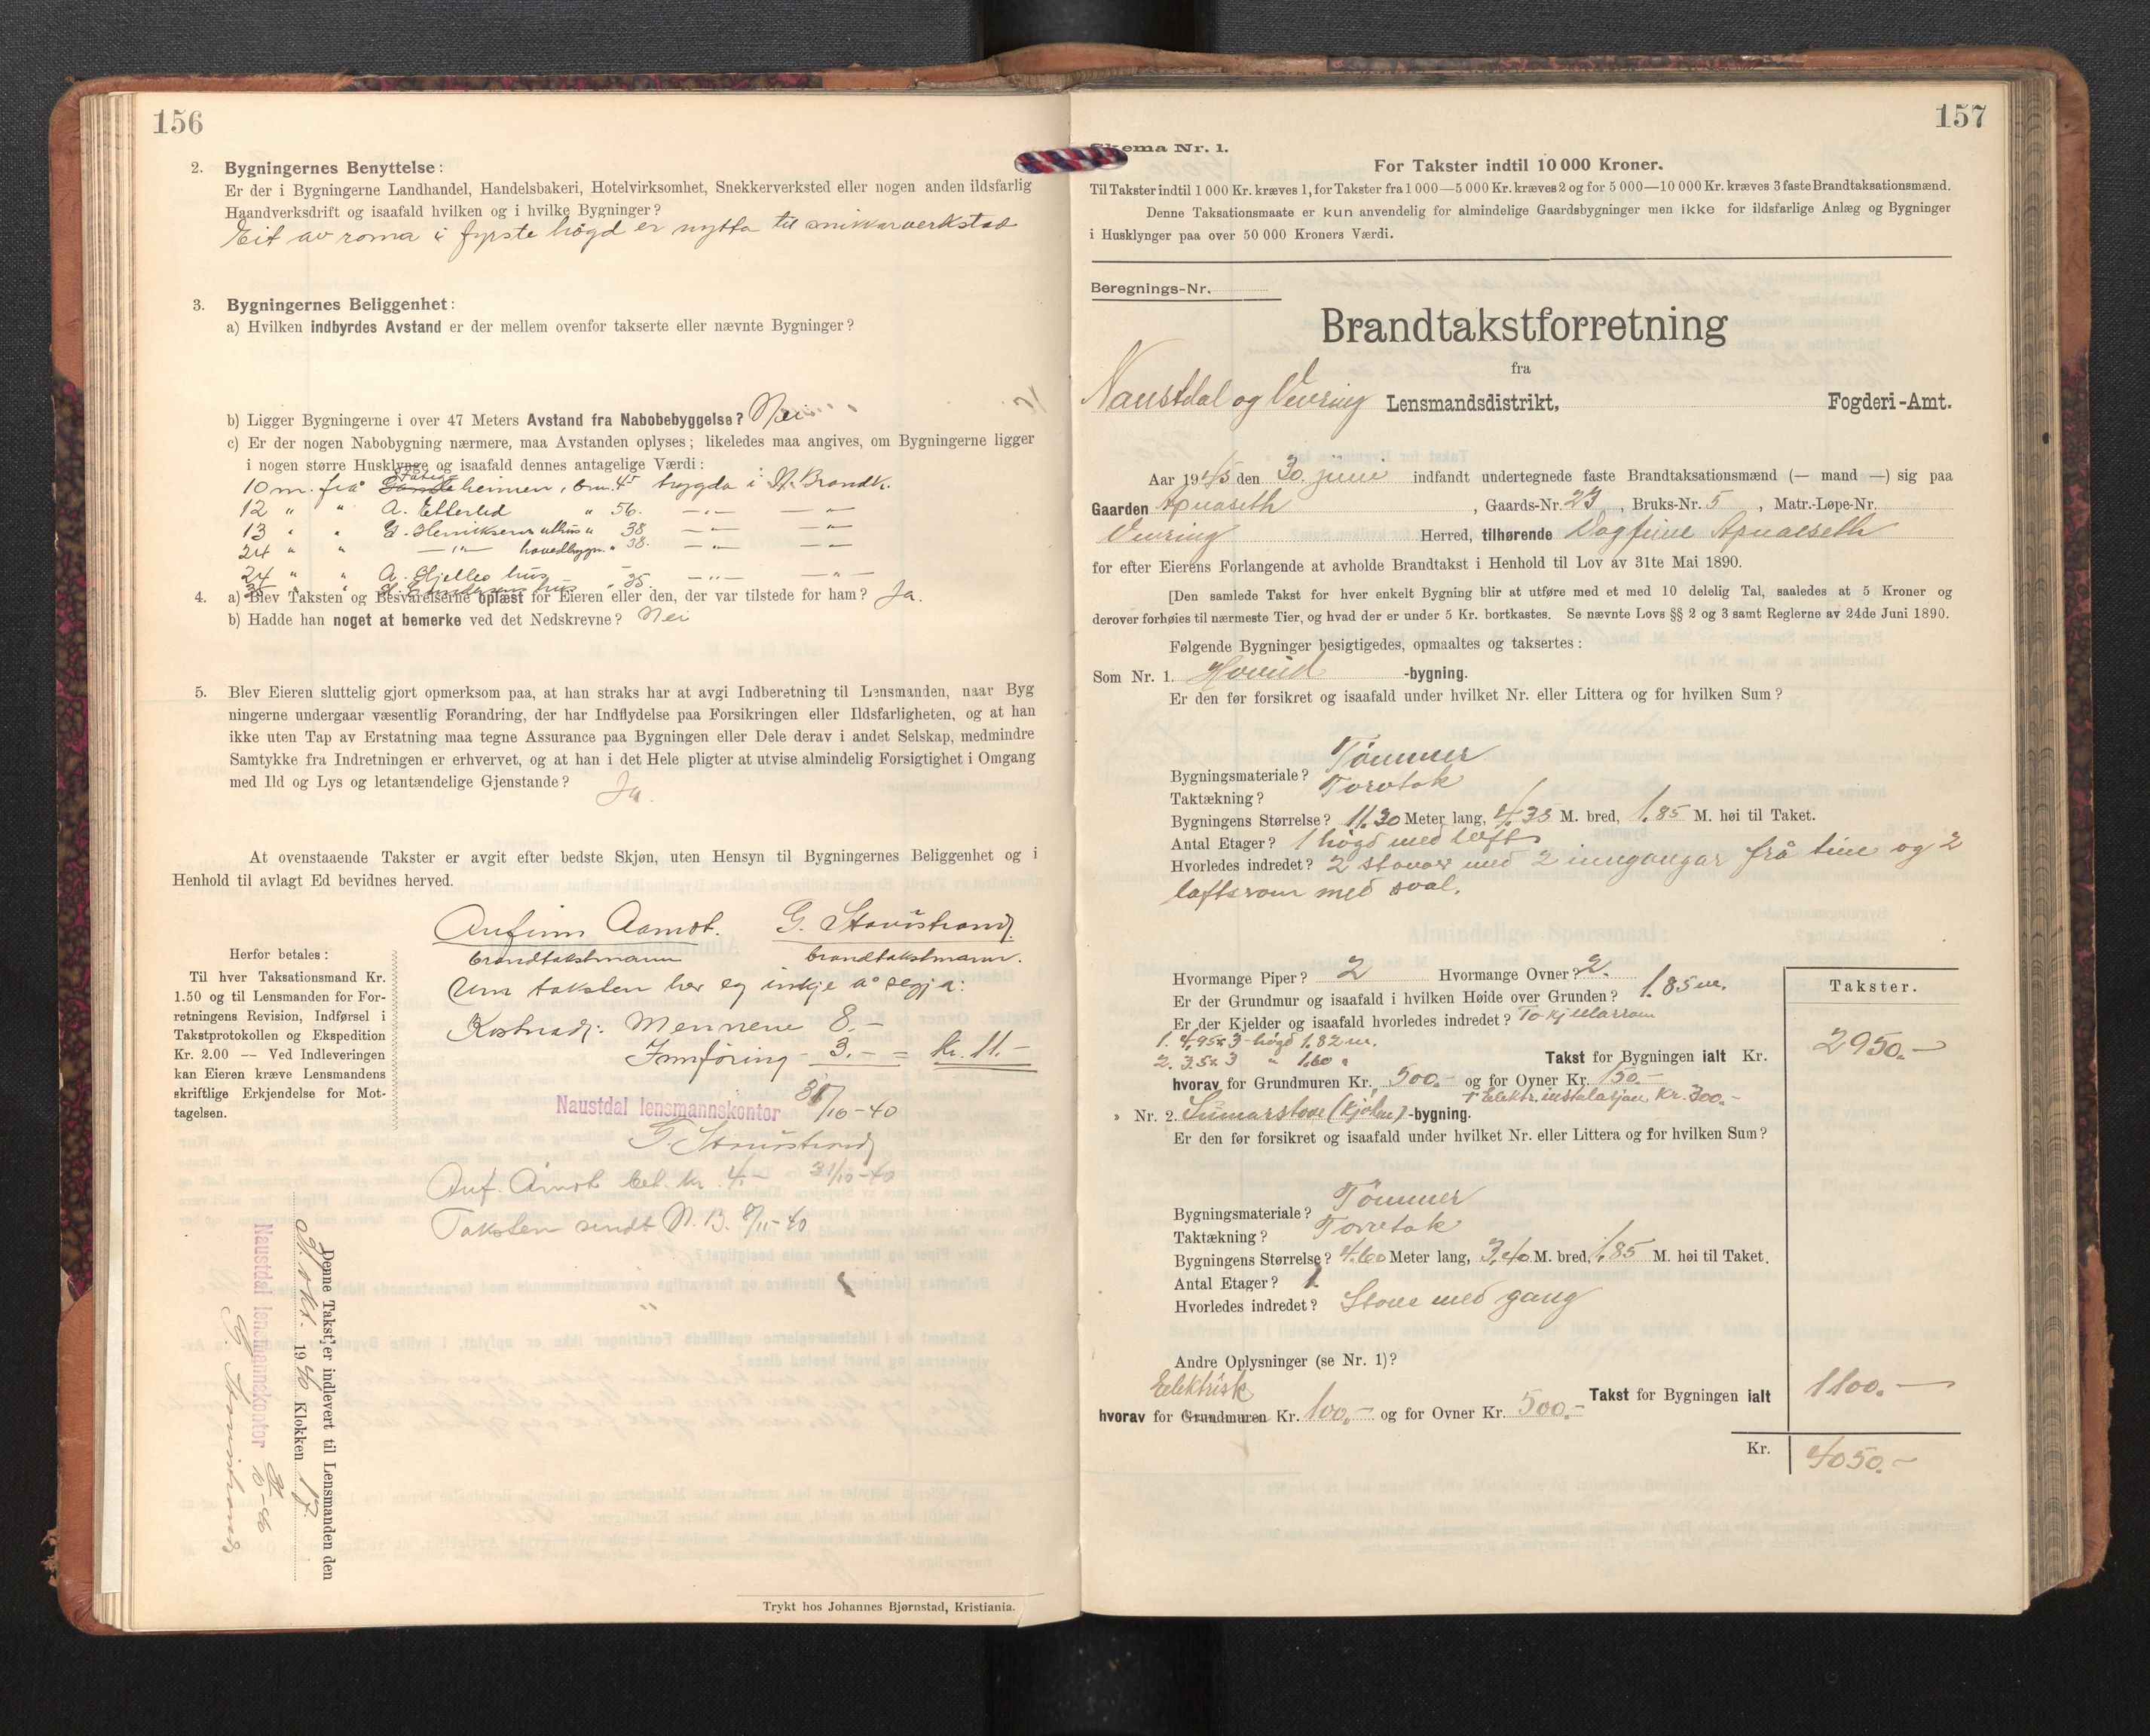 156
2. Bygningernes Benyttelse:
Er der i Bygningerne Landhandel, Handelsbakeri, Hotelvirksomhet, Snekkerverksted eller nogen anden ildsfarlig
Haandverksdrift og isaafald hvilken og i hvilke Bygninger?
Eit av roma i fyrste høgd er nytta til snikkarverkstad
3. Bygningernes Beliggenhet:
a) Hvilken indbyrdes Avstand er der mellem ovenfor takserte eller nævnte Bygninger?
b) Ligger Bygningerne i over 47 Meters Avstand fra Nabobebyggelse? Nei
c) Er der nogen Nabobygning nærmere, maa Avstanden oplyses; likeledes maa angives, om Bygningerne ligger
i nogen større Husklynge og isaafald dennes antagelige Værdi:
10 m. frå heimen, brn. 45 trygda i N. Brandk.
12 " " A. Etterlid " 56. —"— —"—
13 " " G. Henriksens uthus " 38 —"— —"—
24 " " —"— hovedbygn. " 38. —"— —"—
24 " " A. Hjelles hus " 35. —"— —"—
35 " " hus
4. a) Blev Taksten og Besvarelserne oplæst for Eieren eller den, der var tilstede for ham? Ja.
b) Hadde han noget at bemerke ved det Nedskrevne? Nei
5. Blev Eieren sluttelig gjort opmerksom paa, at han straks har at avgi Indberetning til Lensmanden, naar Byg
ningerne undergaar væsentlig Forandring, der har Indflydelse paa Forsikringen eller Ildsfarligheten, og at han
ikke uten Tap av Erstatning maa tegne Assurance paa Bygningen eller Dele derav i andet Selskap, medmindre
Samtykke fra Indretningen er erhvervet, og at han i det Hele pligter at utvise almindelig Forsigtighet i Omgang
med Ild og Lys og letantændelige Gjenstande? Ja.
At ovenstaaende Takster er avgit efter bedste Skjøn, uten Hensyn til Bygningernes Beliggenhet og i
Henhold til avlagt Ed bevidnes herved.
Anfinn Aamot. G. Stavistrand.
brandtakstmann brandtakstmann.
Um taksten her eg inkje å segja:
Kostnad: Mennene 8.–
Innføring – 3.– = kr. 11.–
Naustdal lensmannskontor 31/10-40
G. Stavistrand
Anf. Åmot bet. kr. 4.– 31/10-40
Taksten sendt N. B. 8/11-40
Herfor betales:
Til hver Taksationsmand Kr.
1.50 og til Lensmanden for For-
retningens Revision, Indførsel i
Takstprotokollen og Ekspedition
Kr. 2.00 — Ved Indleveringen
kan Eieren kræve Lensmandens
skriftlige Erkjendelse for Mot-
tagelsen.
Denne Takst er indlevert til Lensmanden den
31 okt. 1940 Klokken 17.
Naustdal lensmannskontor 31/10-40
G. Stavistrand
Trykt hos Johannes Bjørnstad, Kristiania.
157
Skema Nr. 1.
For Takster indtil 10 000 Kroner.
Til Takster indtil 1 000 Kr. kræves 1, for Takster fra 1 000—5 000 Kr. kræves 2 og for 5 000—10 000 Kr. kræves 3 faste Brandtaksationsmænd.
Denne Taksationsmaate er kun anvendelig for almindelige Gaardsbygninger men ikke for ildsfarlige Anlæg og Bygninger
i Husklynger paa over 50 000 Kroners Værdi.
Beregnings-Nr.
Brandtakstforretning
fra
Naustdal og Vevring Lensmandsdistrikt, Fogderi-Amt.
Aar 1945 den 30. juni indfandt undertegnede faste Brandtaksationsmænd (— mand —) sig paa
Gaarden Apnaseth, Gaards-Nr. 23, Bruks-Nr. 5, Matr.-Løpe-Nr.
Vevring Herred, tilhørende Dagfinn Apnaeseth
for efter Eierens Forlangende at avholde Brandtakst i Henhold til Lov av 31te Mai 1890.
[Den samlede Takst for hver enkelt Bygning blir at utføre med et med 10 delelig Tal, saaledes at 5 Kroner og
derover forhøies til nærmeste Tier, og hvad der er under 5 Kr. bortkastes. Se nævnte Lovs §§ 2 og 3 samt Reglerne av 24de Juni 1890.
Følgende Bygninger besigtigedes, opmaaltes og taksertes:
Som Nr. 1. Hovud -bygning.
Er den før forsikret og isaafald under hvilket Nr. eller Littera og for hvilken Sum?
Bygningsmateriale? Tømmer
Taktækning? Torvtak
Bygningens Størrelse? 11.30 Meter lang, 4.35 M. bred, 1.85 M. høi til Taket.
Antal Etager? 1 høgd med loft
Hvorledes indredet? 2 stover med 2 inngangar frå tun og 2
loftsrom med sval.
Hvormange Piper? 2 Hvormange Ovner? 2.
Er der Grundmur og isaafald i hvilken Høide over Grunden? 1.85 m.
Er der Kjelder og isaafald hvorledes indredet? To kjellarrom
1. 4.95x3 - høgd 1.82 m.
2. 3.5x3 " 1.60 "
Takster.
Takst for Bygningen ialt Kr. 2950.–
hvorav for Grundmuren Kr. 500.– og for Ovner Kr. 150.–
+ Elektr. instalasjon Kr. 300.–
» Nr. 2. Sumarstove (kjøken) -bygning.
Er den før forsikret og isaafald under hvilket Nr. eller Littera og for hvilken Sum?
Bygningsmateriale? Tømmer
Taktækning? Torvtak
Bygningens Størrelse? 4.60 Meter lang, 3.40 M. bred, 1.85 M. høi til Taket.
Antal Etager? 1
Hvorledes indredet? Stove med gang
Andre Oplysninger (se Nr. 1)?
Takst for Bygningen ialt 1100.–
Elektrisk
hvorav for Grundmuren Kr. 100.– og for Ovner Kr. 500.–
Kr. 4050.–